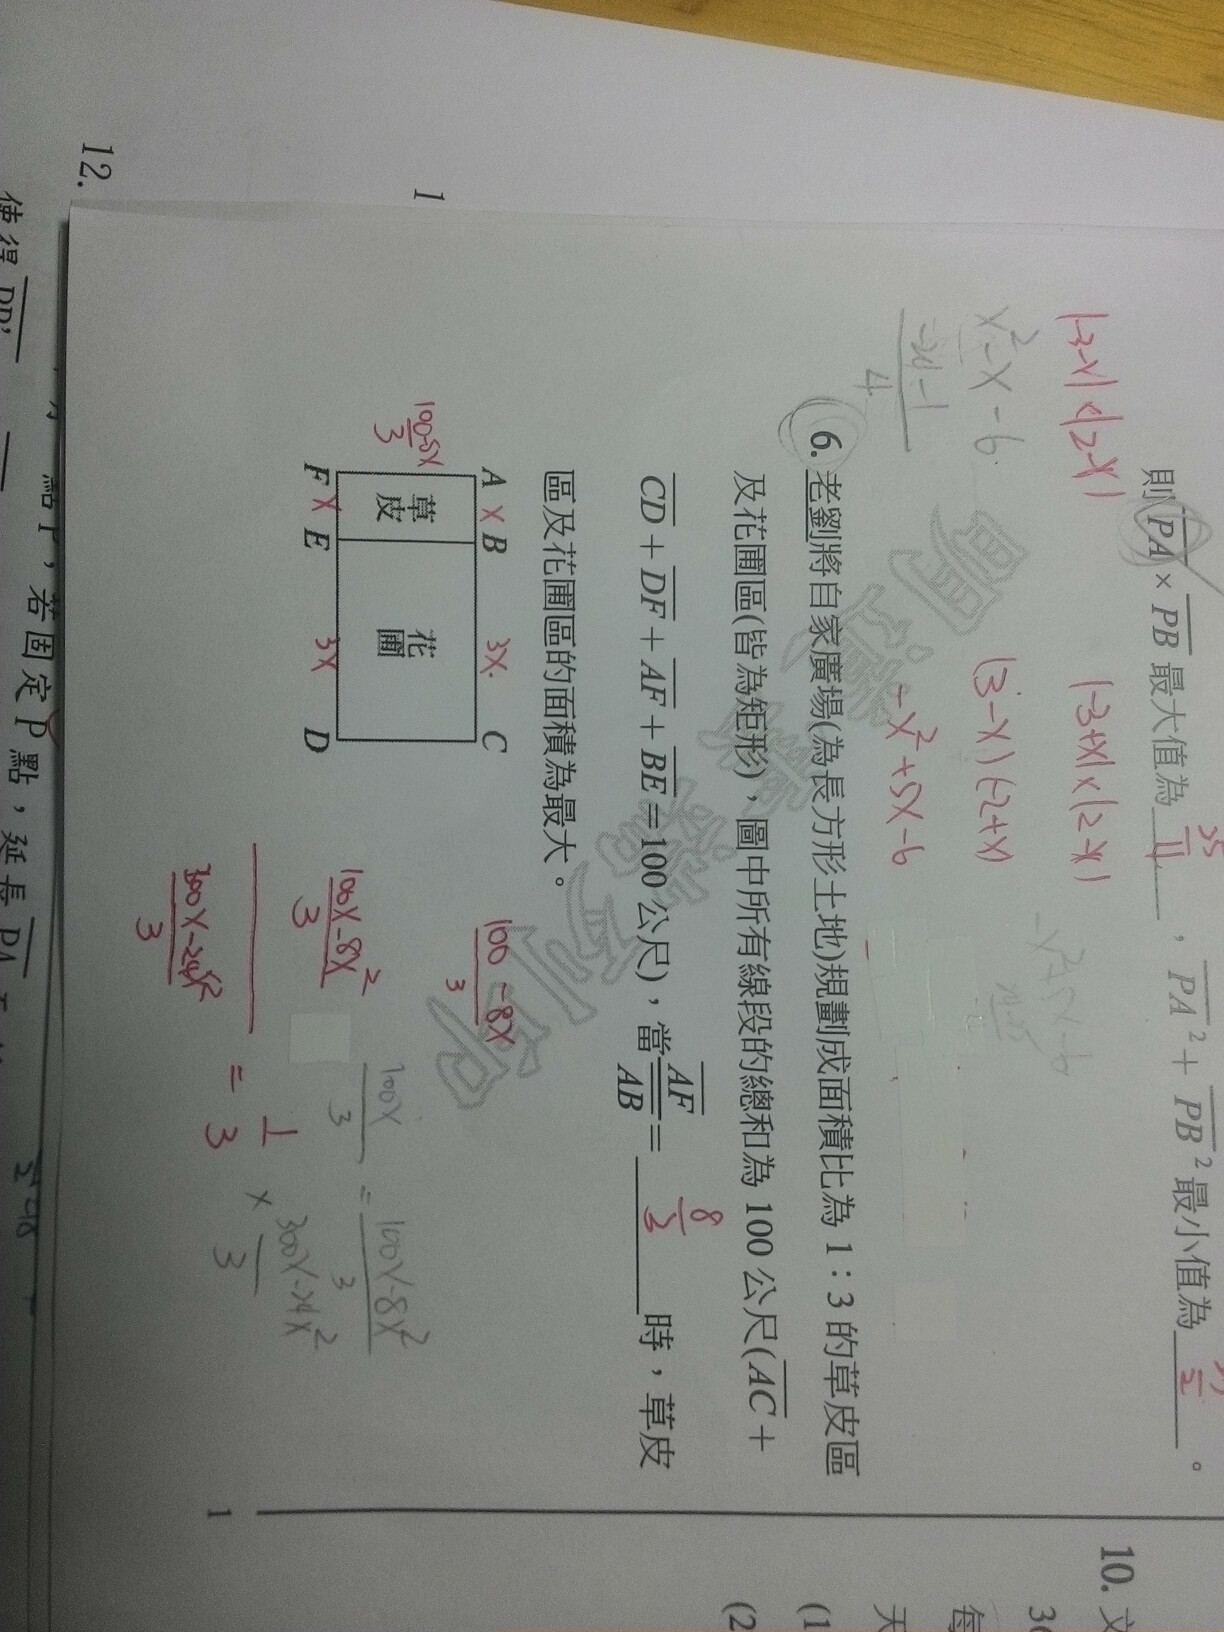 則 PA × PB 最大值為 35/11 ，PA² + PB² 最小值為 。
|-3-x| |2-x|
|-3+x| x |2-x|
x² - x - 6
(3-x)(-2+x)
-x²+5x-6
-x²+5x-6
-24-1
4
6. 老劉將自家廣場(為長方形土地)規劃成面積比為 1：3 的草皮區
及花圃區(皆為矩形)，圖中所有線段的總和為 100 公尺(AC +
CD + DF + AF + BE = 100 公尺)，當 AF/AB = 8/3 時，草皮
區及花圃區的面積為最大。
A x B 3x C
100-8x
3
草皮
花圃
F x E 3x D
100-8x
3
100x-8x²
3
300x-24x²
3
= 1/3
100x/3 = 100x-8x²/3
x 300x-24x²/3
1
10. 文
30
每
天
(1
(2
1
12.
使得 DP'
點 P，若固定 P 點，延長 PA